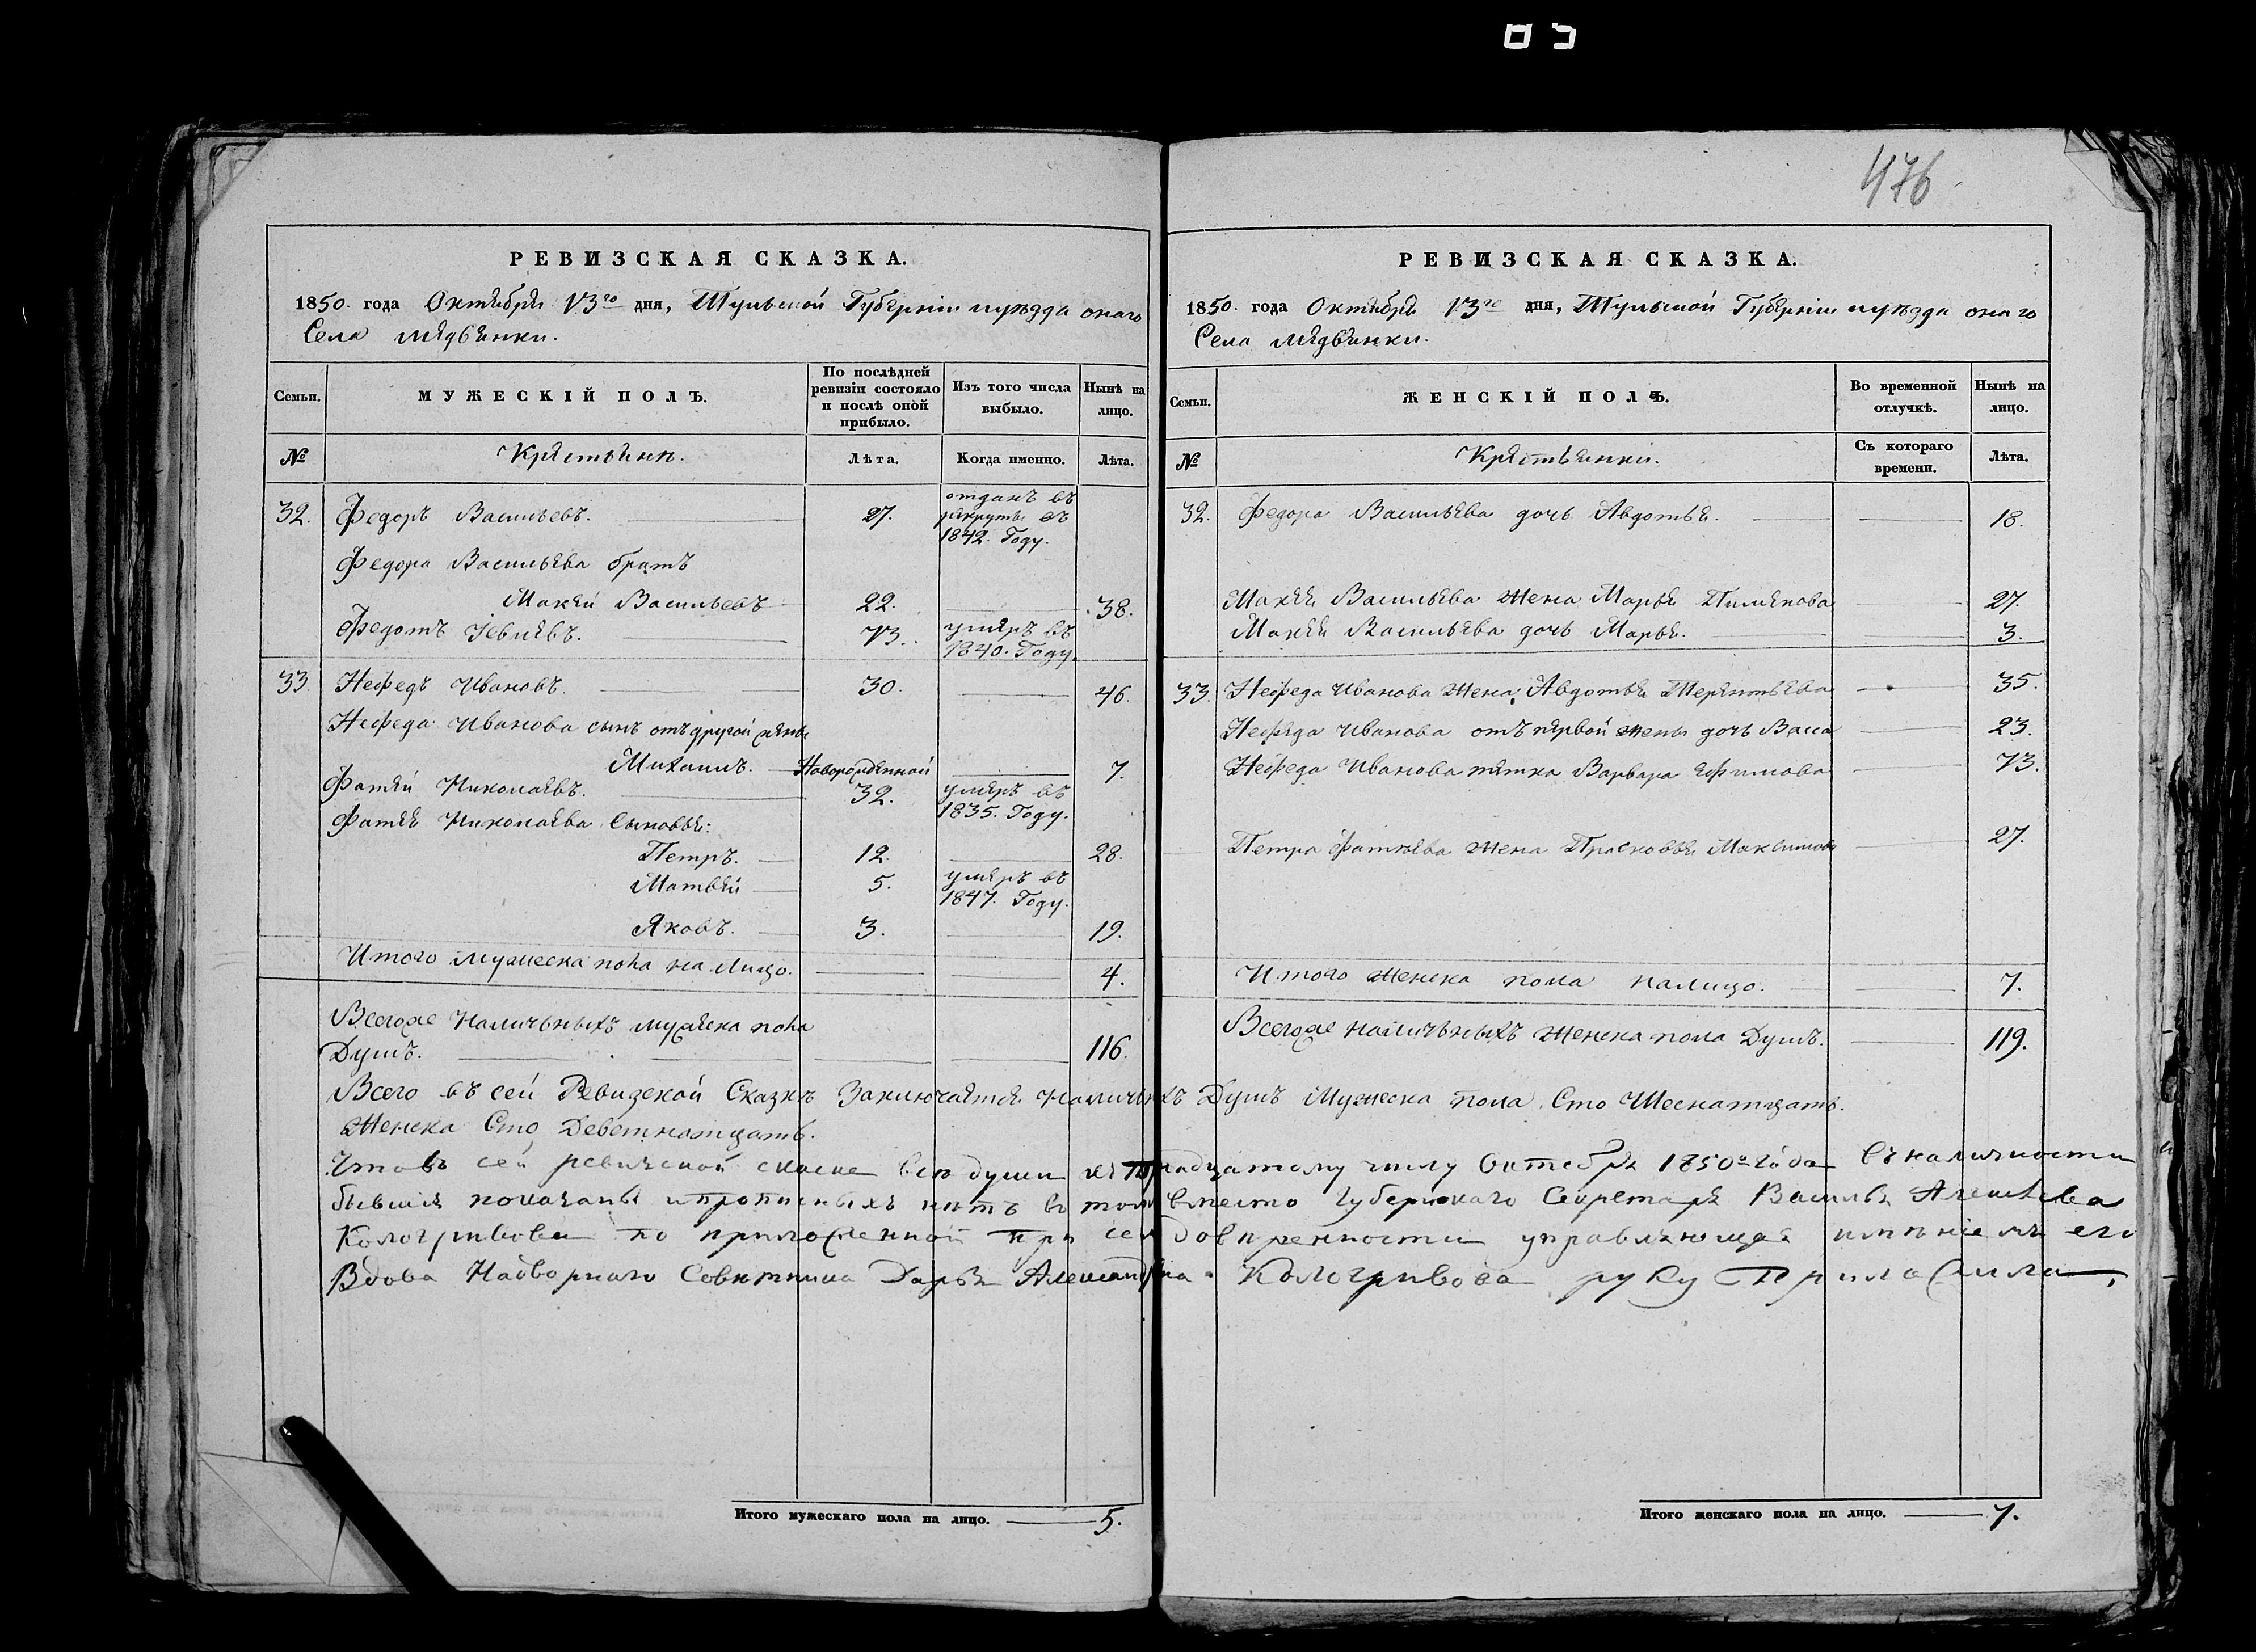 476
РЕВИЗСКАЯ СКАЗКА.
1850. года Октября 13го дня, Тульской Губерніи и уѣзда онаго
Села Медвенки.
Семьи.
МУЖЕСКІЙ ПОЛЪ.
По послѣдней ревизіи состояло и послѣ оной прибыло.
Изъ того числа выбыло.
Нынѣ на лицо.
№
Крестьяне.
Лѣта.
Когда именно.
Лѣта.
32. Федоръ Васильевъ. 27. отданъ въ рекруты въ 1842. Году.
Федора Васильева братъ
Макей Васильевъ 22. 38.
Федотъ 73. умеръ въ 1840. Году.
33. Нефедъ Ивановъ. 30. 46.
Нефеда Иванова сынъ отъ другой жены
Михаилъ. Новорожденной 7.
Фатей Николаевъ. 32. умеръ въ 1835. Году.
Фатея Николаева Сыновья:
Петръ. 12. 28.
Матвей 5. умеръ въ 1847. Году.
Яковъ. 3. 19.
Итого мужеска пола на лицо. 4.
Всегоже Наличныхъ мужеска пола
Душъ. 116.
РЕВИЗСКАЯ СКАЗКА.
1850. года Октября 13го дня, Тульской Губерніи и уѣзда онаго
Села Медвенки.
Семьи.
ЖЕНСКІЙ ПОЛЪ.
Во временной отлучкѣ.
Нынѣ на лицо.
№
Крестьянки.
Съ котораго времени.
Лѣта.
32. Федора Васильева дочь Авдотья. 18.
Макея Васильева жена Марья Пименова 27.
Макея Васильева дочь Марья. 3.
33. Нефеда Иванова жена Авдотья Терентьева 35.
Нефеда Иванова отъ первой жены дочь Васса 23.
Нефеда Иванова тетка Варвара Ефимова 73.
Петра Фатеева жена Прасковья Максимова 27.
Итого женска пола налицо. 7.
Всегоже наличьныхъ женска пола Душъ. 119.
Всего въ сей Ревизской Сказкѣ Заключается Наличныхъ Душъ Мужеска пола Сто Шеснатцать.
Женска Сто Деветнатцать.
Что въ сей ревизской скаске все души къ Тринадцатому числу Октебря 1850го года въ наличности
бывшия показаны и прописныхъ нетъ въ томъ вместо Губернскаго Секретаря Василья Алексеева
Кологривова по приложенной при сем доверенности управляющая имѣніемъ его
Вдова Надворнаго Советника Дарья Александрова Кологривова руку Приложила,
Итого мужескаго пола на лицо. 5.
Итого женскаго пола на лицо. 7.